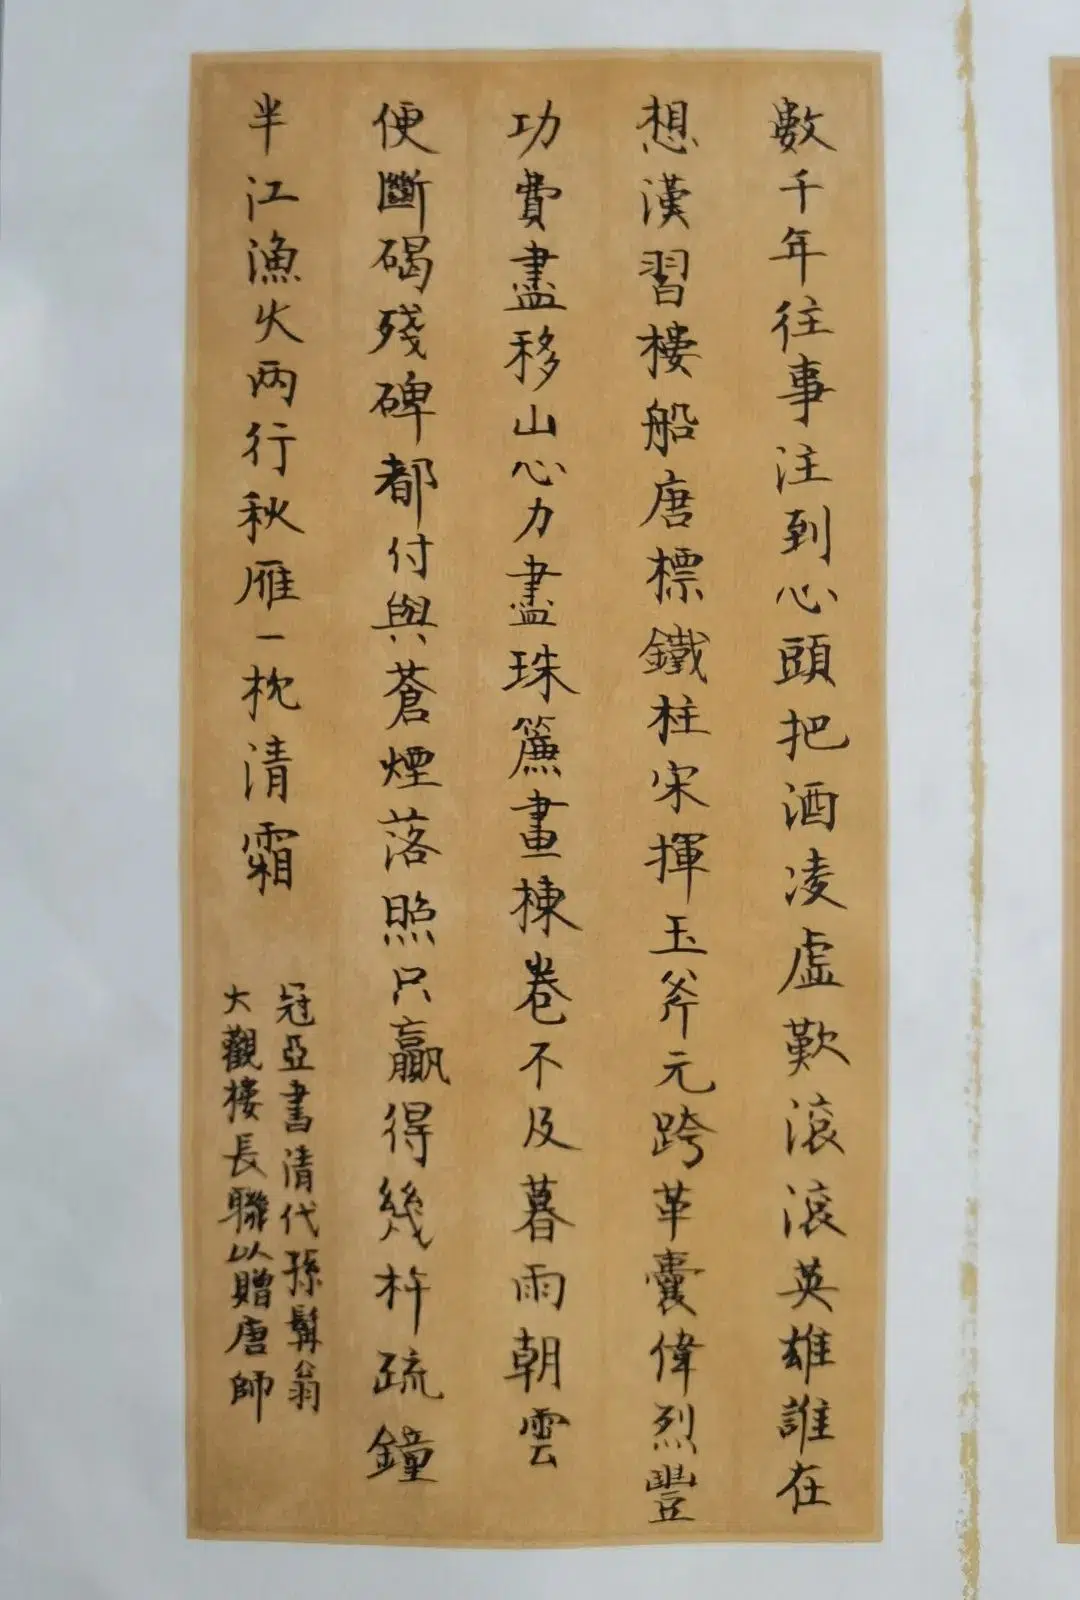 數千年往事注到心頭把酒凌虛歎滾滾英雄誰在
想漢習樓船唐標鐵柱宋揮玉斧元跨革囊偉烈豐
功費盡移山心力盡珠簾畫棟卷不及暮雨朝雲
便斷碣殘碑都付與蒼煙落照只贏得幾杵疏鐘
半江漁火兩行秋雁一枕清霜
冠亞書清代孫髯翁
大觀樓長聯以贈唐師